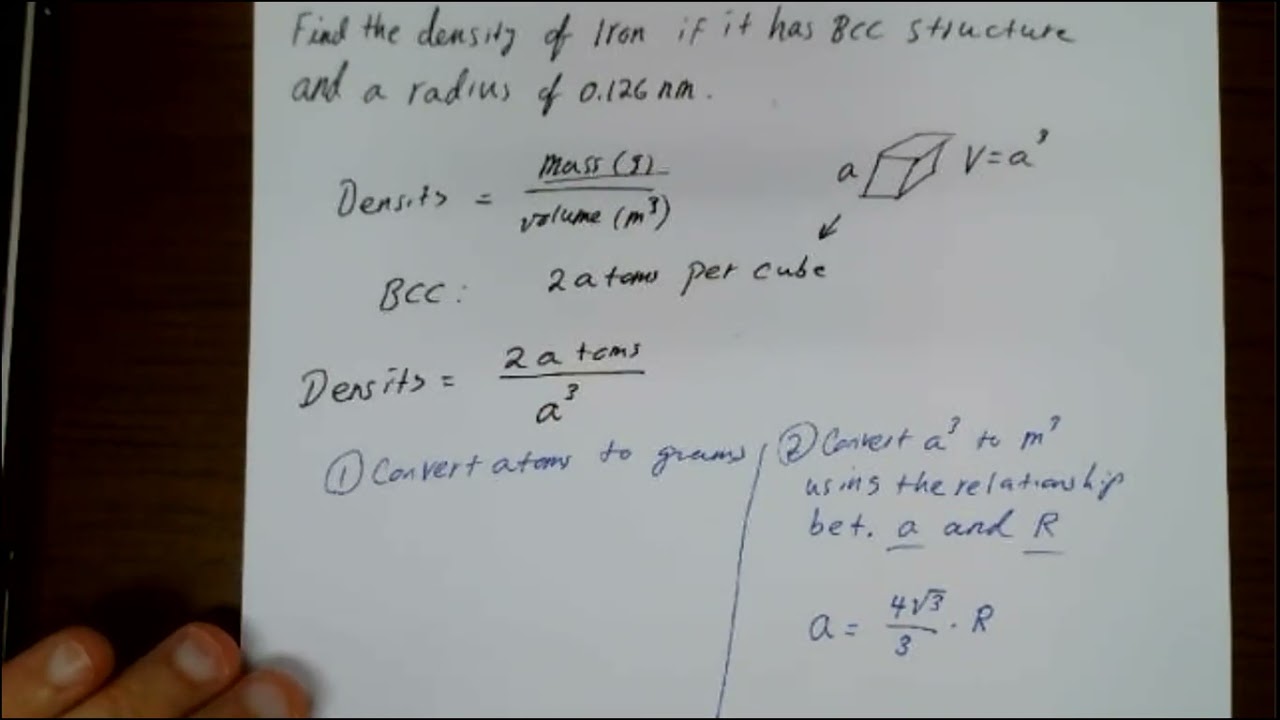 Find the density of Iron if it has BCC structure
and a radius of 0.126 nm.
Density = mass (g) / volume (m³)
a V = a³
BCC: 2 atoms per cube
Density = 2 atoms / a³
① Convert atoms to grams
② Convert a³ to m³
using the relationship
bet. a and R
a = 4√3 / 3 · R